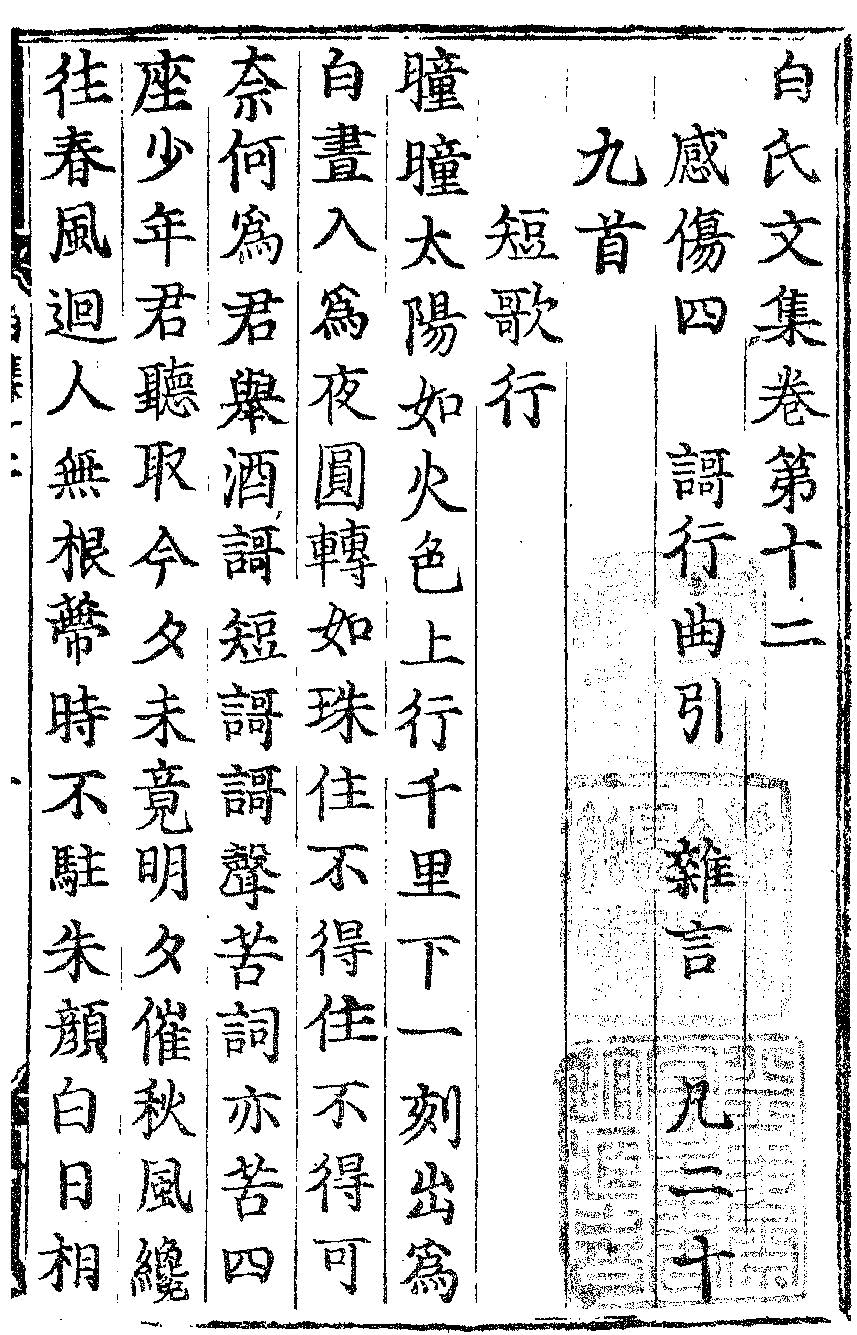 白氏文集卷第十二
感傷四　謌行曲引　雜言　凡二十
九首
短歌行
曈曈太陽如火色上行千里下一刻出爲
白晝入爲夜圓轉如珠住不得住不得可
奈何爲君舉酒謌短謌謌聲苦詞亦苦四
座少年君聽取今夕未竟明夕催秋風纔
往春風迴人無根蔕時不駐朱顔白日相